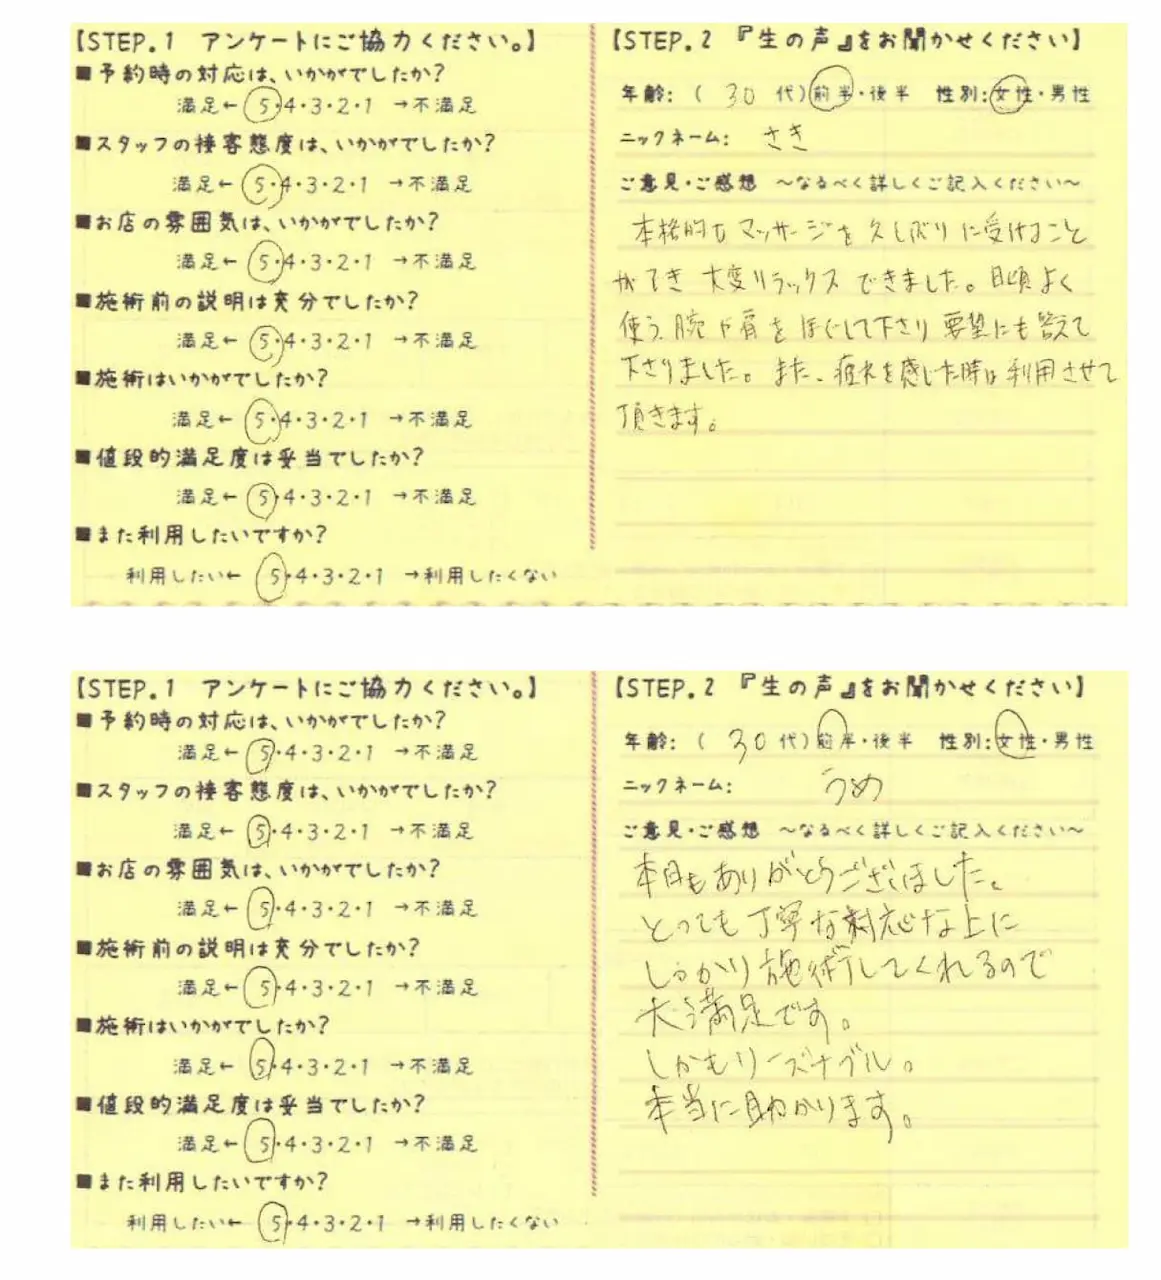 【STEP.1 アンケートにご協力ください。】
■予約時の対応は、いかがでしたか?
満足← 5・4・3・2・1 →不満足
■スタッフの接客態度は、いかがでしたか?
満足← 5・4・3・2・1 →不満足
■お店の雰囲気は、いかがでしたか?
満足← 5・4・3・2・1 →不満足
■施術前の説明は充分でしたか?
満足← 5・4・3・2・1 →不満足
■施術はいかがでしたか?
満足← 5・4・3・2・1 →不満足
■値段的満足度は妥当でしたか?
満足← 5・4・3・2・1 →不満足
■また利用したいですか?
利用したい← 5・4・3・2・1 →利用したくない
【STEP.2 『生の声』をお聞かせください】
年齢:( 30 代)前半・後半 性別:女性・男性
ニックネーム: さき
ご意見・ご感想 ～なるべく詳しくご記入ください～
本格的なマッサージを久しぶりに受けること
ができ 大変リラックスできました。日頃よく
使う腕や肩をほぐして下さり要望にも答えて
下さりました。また、疲れを感じた時は利用させて
頂きます。
【STEP.1 アンケートにご協力ください。】
■予約時の対応は、いかがでしたか?
満足← 5・4・3・2・1 →不満足
■スタッフの接客態度は、いかがでしたか?
満足← 5・4・3・2・1 →不満足
■お店の雰囲気は、いかがでしたか?
満足← 5・4・3・2・1 →不満足
■施術前の説明は充分でしたか?
満足← 5・4・3・2・1 →不満足
■施術はいかがでしたか?
満足← 5・4・3・2・1 →不満足
■値段的満足度は妥当でしたか?
満足← 5・4・3・2・1 →不満足
■また利用したいですか?
利用したい← 5・4・3・2・1 →利用したくない
【STEP.2 『生の声』をお聞かせください】
年齢:( 30 代)前半・後半 性別:女性・男性
ニックネーム: うめ
ご意見・ご感想 ～なるべく詳しくご記入ください～
本日もありがとうございました。
とっても丁寧な対応な上に
しっかり施術してくれるので
大満足です。
しかもリーズナブル。
本当に助かります。